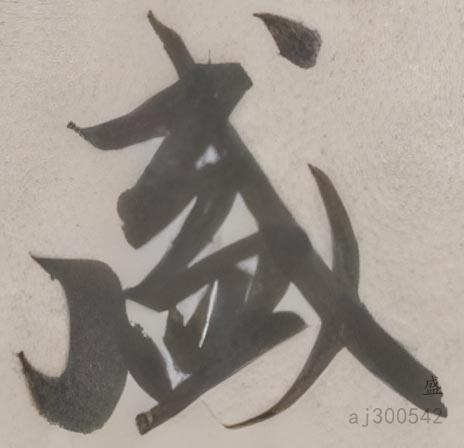 盛
盛
aj300542